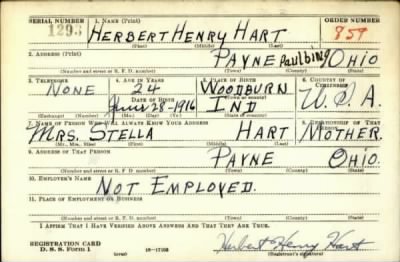 SERIAL NUMBER 1. NAME (Print) ORDER NUMBER
1293 HERBERT HENRY HART 859
(First) (Middle) (Last)
2. ADDRESS (Print)
PAYNE Paulding OHIO
(Number and street or R. F. D. number) (Town) (County) (State)
3. TELEPHONE 4. AGE IN YEARS 5. PLACE OF BIRTH 6. COUNTRY OF CITIZENSHIP
NONE 24 WOODBURN U.S.A.
DATE OF BIRTH (Town or county)
June 28-1916 IND
7. NAME OF PERSON WHO WILL ALWAYS KNOW YOUR ADDRESS 8. RELATIONSHIP OF THAT PERSON
MRS. STELLA HART MOTHER
(Mr., Mrs., Miss) (First) (Middle) (Last)
9. ADDRESS OF THAT PERSON
PAYNE OHIO.
(Number and street or R. F. D. number) (Town) (County) (State)
10. EMPLOYER'S NAME
NOT EMPLOYED.
11. PLACE OF EMPLOYMENT OR BUSINESS
(Number and street or R. F. D. number) (Town) (County) (State)
I AFFIRM THAT I HAVE VERIFIED ABOVE ANSWERS AND THAT THEY ARE TRUE.
REGISTRATION CARD
D. S. S. Form 1 Herbert Henry Hart
(over) (Registrant's signature)